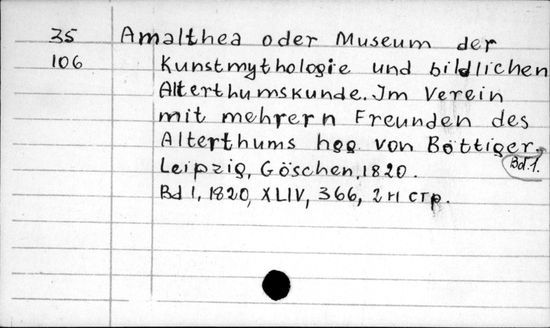 35 Amalthea oder Museum der
106 Kunstmythologie und bildlichen
Alterthumskunde. Im Verein
mit mehrern Freunden des
Alterthums hgg von Böttiger.
Bd.1.
Leipzig, Göschen, 1820.
Bd 1, 1820, XLIV, 366, 2 н стр.